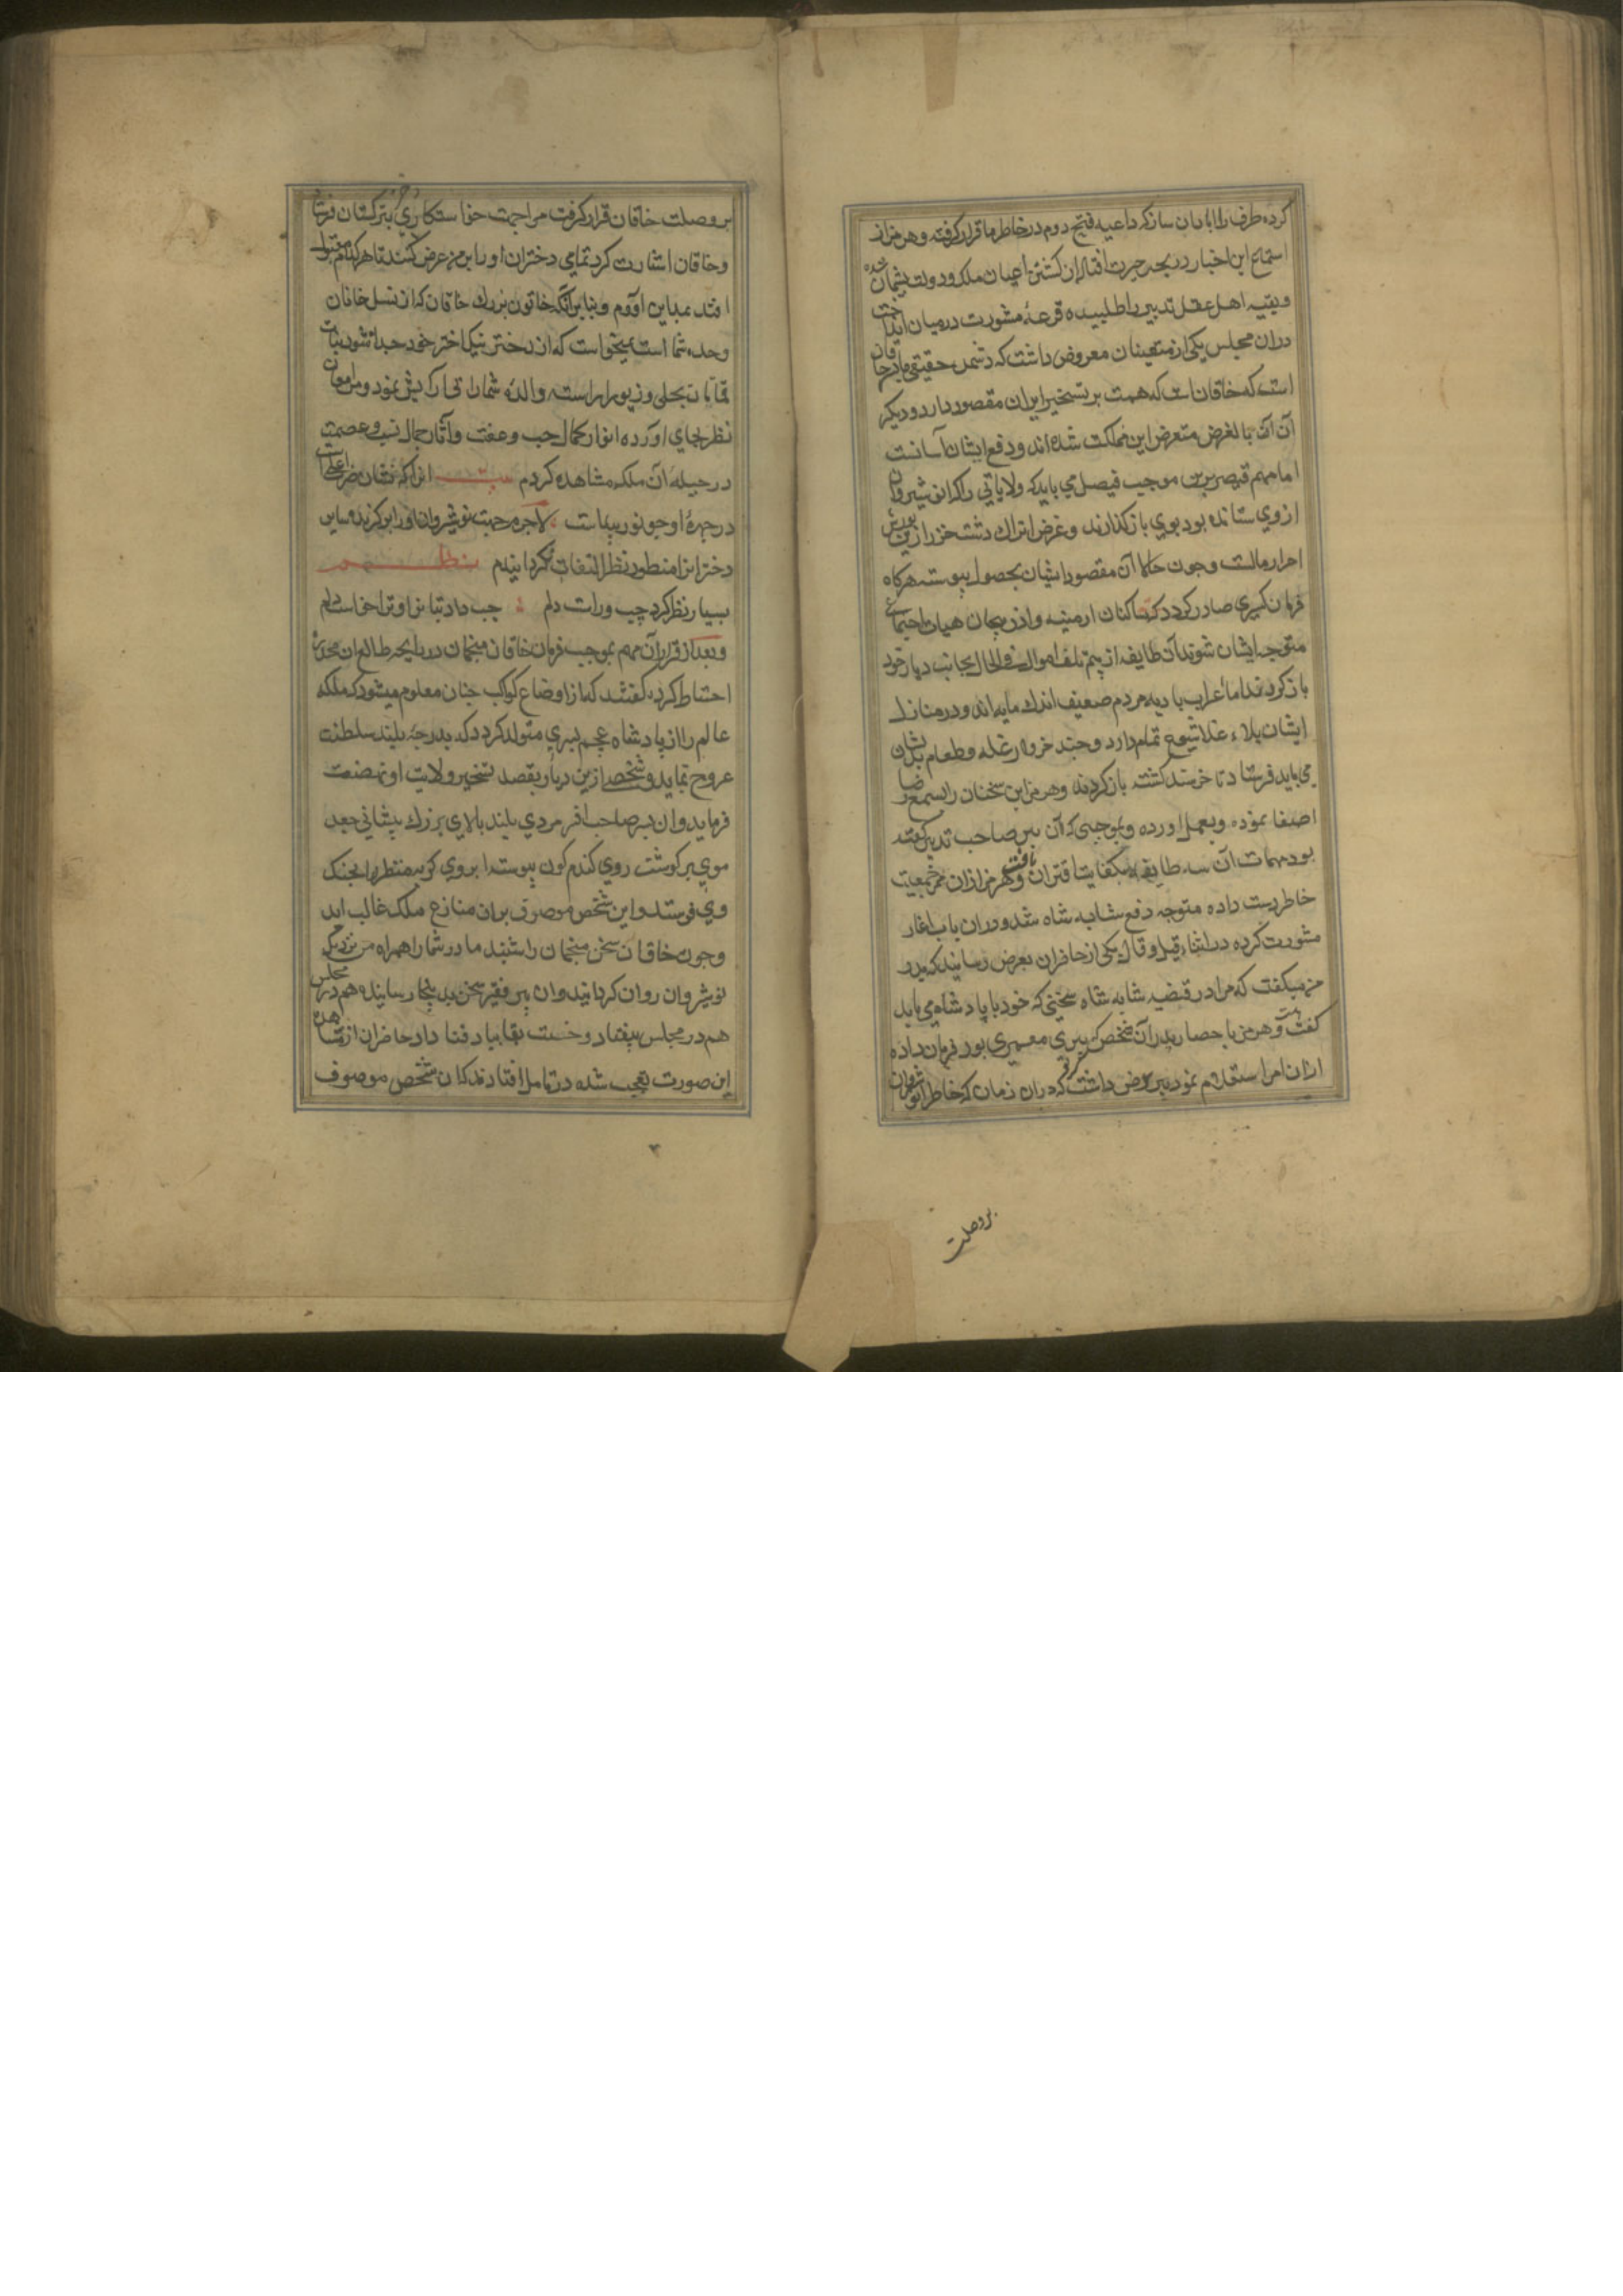 کرده طرف راابادان سازکه داعیه فتح دوم درخاطر ما قرار گرفته وهرمز از
استماع این اخبار در بحر حیرت افتاد از کشتن اعیان ملک و دولت پشمان شده
وبقیه اهل عقل تدبیر را طلبیده قرعهٔ مشورت درمیان انداخت
دران مجلس یکی از متعینان معروض داشت که دشمن حقیقی ما پدر خاقان
است که خاقان است که همت بر تسخیر ایران مقصور دارد و دیگر
آن آن بالغرض متعرض این مملکت شده اند ودفع ایشان آسانست
اما مهم قیصر بدین موجب فیصل می باید که ولایاتی راکه انوشیروان
ازوی ستانده بود بوی بازگذارند وغرض اتراک دشت خزر ازین یورش
احراز مالست وچون حالا آن مقصود ایشان بحصول پیوسته هرکاه
فرمان کسری صادر گردد که ساکنان ارمنیه واذربیجان هیات اجتماعی
متوجه ایشان شوند آن طایفه از بیم تلف اموال فی الحال بجانب دیار خود
بازکردند اما اعراب بادیه مردم ضعیف اندک مایه اند ودر منازل
ایشان بلاء غلا شیوع تمام دارد وچند خروار غله وطعام بدیشان
می باید فرستاد تا خرسند کشته بازکردند وهرمز این سخنان رابسمع رضا
اصغا نموده وبعمل اورده وبموجبی که آن پیر صاحب تدبیر کفته
بود مهمات آن سه طایفه بکفایت اقتران یافت وهرمز ازان ممر جمعیت
خاطر دست داده متوجه دفع شابه شاه شد ودران باب اغاز
مشورت کرده دراثناء قیل وقال یکی از حاضران بعرض رسانید که پدر
من میکفت که مرا در قضیه شابه شاه سخنی که خود با پادشاه می باید
کفت وهرمز باحضار پدر آن شخص که پیری معمری بود فرمان داده
ازان امر استعلام نمود پیر عرض داشت که دران زمان که خاطر انوشیروان
بروصلت
بروصلت خاقان قرار کرفت مرا جهت خواستکاری دختر بترکستان فرستاد
وخاقان اشارت کرد تمامی دختران اورا بر من عرض کنند تا هر کدام مقبول
افتد بمداین آورم وبنابرآنکه خاتون بزرک خاقان که از نسل خانان
وجده شما است نمیخواست که ازدختر نیک اختر خود جدا شود بنات
قمایان بحلی وزیور اراسته والدهٔ شمارا بی ارایش نمود ومن امعان
نظر بجای اورده انوار کمال حسب وعفت وآثار جمال نسب وعصمت
درجبیلهٔ آن ملکه مشاهده کردم بیت انراکه نشان ضرب اعلی است
درچهرهٔ او چو نور پیداست لاجرم جهت نوشیروان اورا برکزیده سایر
دخترانرا منظور نظر التفات نکردانیدم نظم
بسیار نظر کرد چپ وراست دلم چپ داد بتان را وترا خواست دلم
وبعد از قرار آن مهم بموجب فرمان خاقان منجمان در زایجه طالع ان مخدره
احتیاط کرده کفتند که از اوضاع کواکب چنان معلوم میشود که ملکه
عالم را از پادشاه عجم پسری متولد کردد که بدرجهٔ بلند سلطنت
عروج نماید وشخصی ازین دیار بقصد تسخیر ولایت او نهضت
فرماید وان پسر صاحب افر مردی بلند بالای بزرک پیشانی جعد
موی پر کوشت روی کندم کون پیوسته ابروی کوچه منظر را بجنک
وی فرستد واین شخص موصوف بران منازع ملک غالب اید
وچون خاقان سخن منجمان را شنید مادر شما را همراه من نزدیک
نوشیروان روان کردانید وان پیر فقیر سخن بدینجا رسانیده هم دران مجلس
هم در مجلس بیفتاد ورخت بقا بباد فنا داد حاضران از مشاهده
این صورت تعجب شده درتامل افتادند که ان شخص موصوف